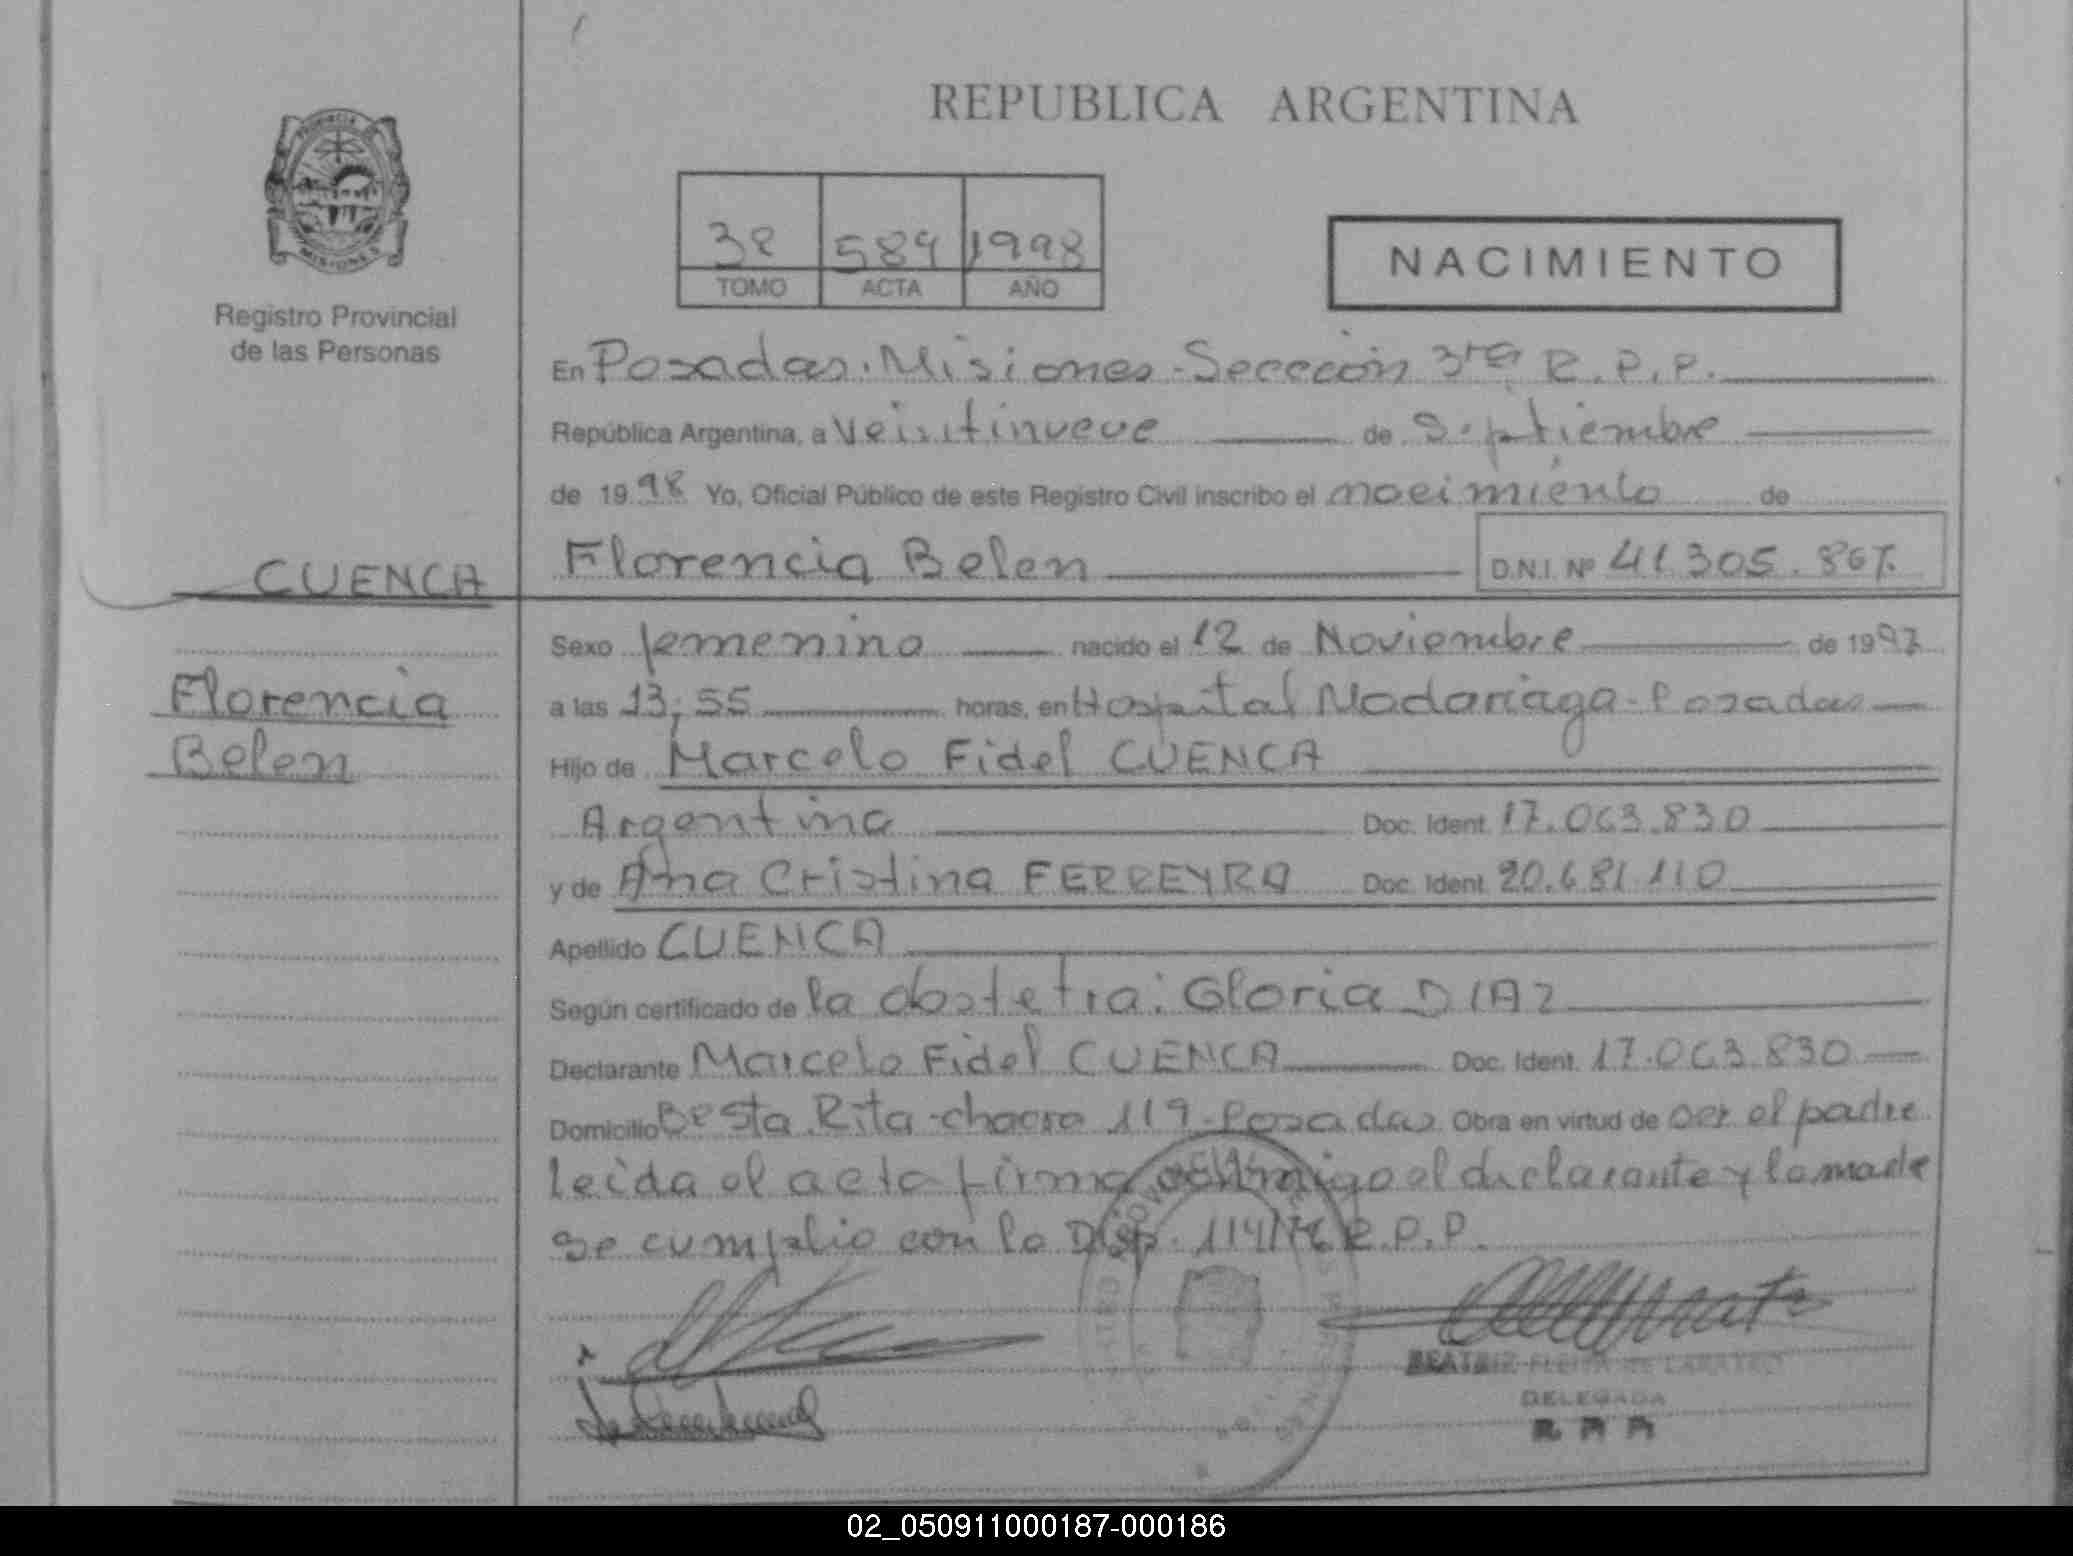 REPUBLICA ARGENTINA
PROVINCIA DE
MISIONES
Registro Provincial
de las Personas
38 584 1998
TOMO ACTA AÑO
NACIMIENTO
En Posadas. Misiones - Sección 3ra R.P.P.
República Argentina, a Veintinueve de Septiembre
de 1998 Yo, Oficial Público de este Registro Civil inscribo el nacimiento de
Florencia Belen D.N.I. Nº 41.305.867.
CUENCA
Florencia
Belen
Sexo femenino nacido el 12 de Noviembre de 1997
a las 13,55 horas, en Hospital Madariaga - Posadas
Hijo de Marcelo Fidel CUENCA
Argentina Doc. Ident. 17.063.830
y de Ana Cristina FERREYRA Doc. Ident. 20.681.110
Apellido CUENCA
Según certificado de la obstetra: Gloria DIAZ
Declarante Marcelo Fidel CUENCA Doc. Ident. 17.063.830
Domicilio Bº Sta Rita - chacra 119 - Posadas Obra en virtud de ser el padre
Leida el acta firma conmigo el declarante y la madre
se cumplio con la Disp. 114/76 R.P.P.
BEATRIZ
DELEGADA
02_050911000187-000186